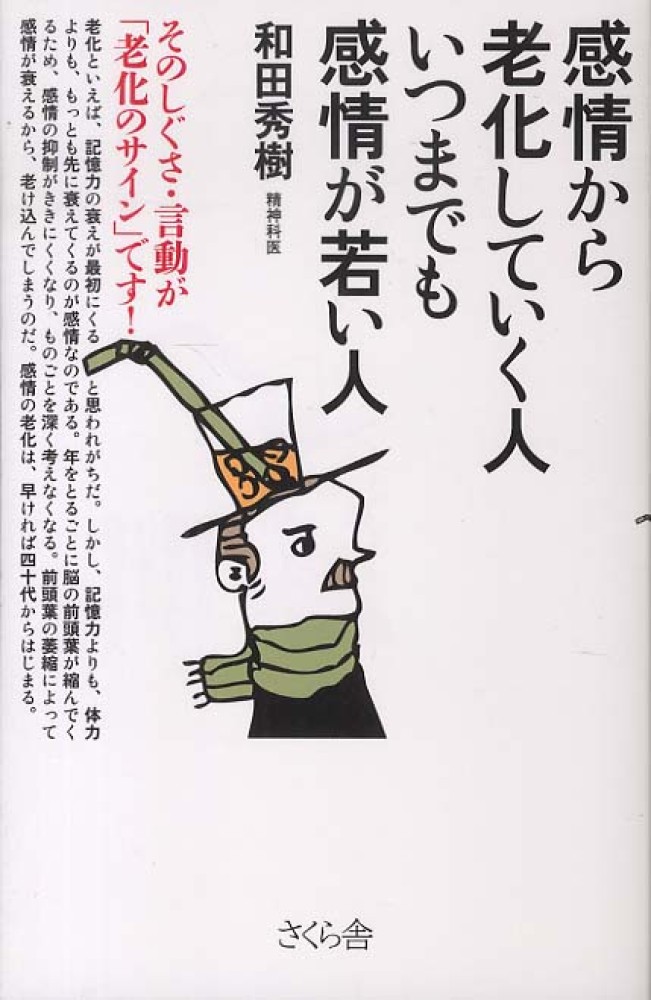 感情から
老化していく人
いつまでも
感情が若い人
和田秀樹
精神科医
そのしぐさ・言動が
「老化のサイン」です!
老化といえば、記憶力の衰えが最初にくると思われがちだ。しかし、記憶力よりも、体力
よりも、もっとも先に衰えてくるのが感情なのである。年をとるごとに脳の前頭葉が縮んでく
るため、感情の抑制がききにくくなり、ものごとを深く考えなくなる。前頭葉の萎縮によって
感情が衰えるから、老け込んでしまうのだ。感情の老化は、早ければ四十代からはじまる。
さくら舎